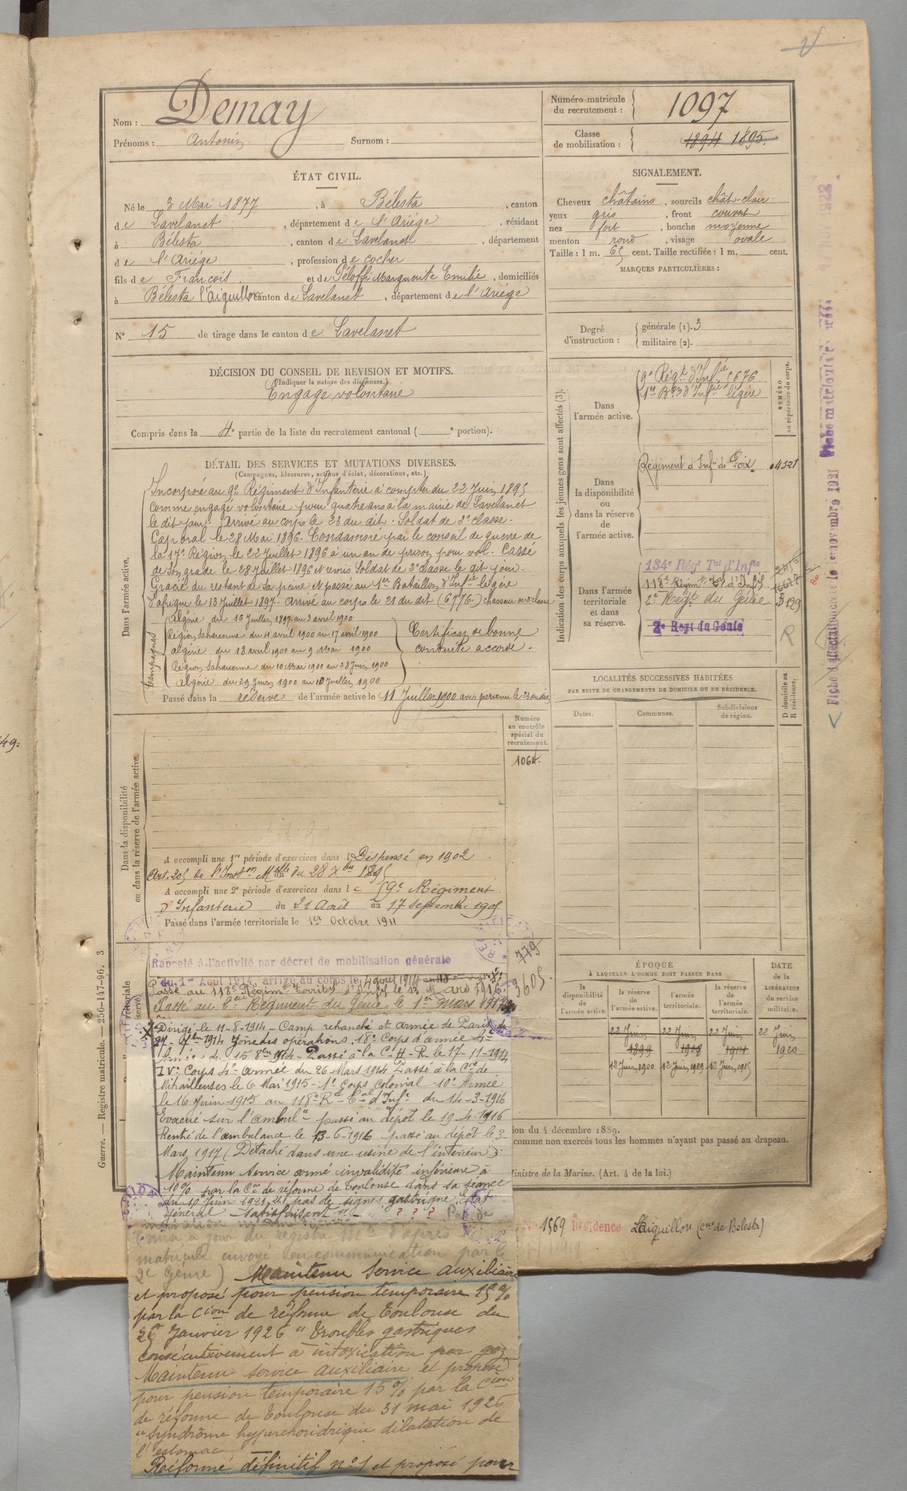 Nom : Demay
Prénoms : Antonin Surnom :
Numéro matricule du recrutement : 1097
Classe de mobilisation : 1894 1895.
ÉTAT CIVIL.
Né le 3 Mai 1877, à Bélesta, canton
de Lavelanet, département de l'Ariége, résidant
à Bélesta, canton de Lavelanet, département
de l'Ariége, profession de cocher
fils de François et de Marguerite Emilie, domiciliés
à Bélesta l'Aiguillon canton de Lavelanet, département de l'Ariége
N° 15 de tirage dans le canton de Lavelanet
SIGNALEMENT.
Cheveux châtains, sourcils chât-clair
yeux gris, front couvert
nez fort, bouche moyenne
menton rond, visage ovale
Taille : 1 m. 65 cent. Taille rectifiée : 1 m. cent.
MARQUES PARTICULIÈRES :
Degré d'instruction : générale (1). 3
militaire (2).
DÉCISION DU CONSEIL DE REVISION ET MOTIFS.
(Indiquer la nature des dispenses.)
Engagé volontaire
Compris dans la 4e partie de la liste du recrutement cantonal ( e portion).
DÉTAIL DES SERVICES ET MUTATIONS DIVERSES.
(Campagnes, blessures, actions d'éclat, décorations, etc.)
Dans l'armée active.
Incorporé au 9e Régiment d'Infanterie à compter du 22 Juin 1895
comme engagé volontaire pour quatre ans à la mairie de Lavelanet
le dit jour. Arrivé au corps le 23 du dit. Soldat de 2e classe.
Caporal le 28 Mai 1896. Condamné par le conseil de guerre de
la 17e Région le 22 Juillet 1896 à un an de prison pour vol. Cassé
de son grade le 28 Juillet 1896 et remis Soldat de 2e classe le dit jour.
Gracié du restant de sa peine et passé au 1er Bataillon d'Infie légère
d'afrique le 13 Juillet 1897. Arrivé au corps le 21 du dit (6776.)
Campagnes
Algérie du 16 Juillet 1897 au 3 avril 1900
Région saharienne du 11 avril 1900 au 17 avril 1900
algérie du 18 avril 1900 au 9 Mai 1900
Région Saharienne du 10 Mai 1900 au 28 Juin 1900
Algérie du 29 Juin 1900 au 10 Juillet 1900
Certificat de bonne
conduite accordé.
Passé dans la réserve de l'armée active le 11 Juillet 1900
Indication des corps auxquels les jeunes gens sont affectés (3).
NUMÉRO au répertoire du corps.
Dans l'armée active.
9e Régt d'Infie 6676
1er Bon d'Infie légère
Dans la disponibilité ou dans la réserve de l'armée active.
Régiment d'Infie de Foix. 04321
Dans l'armée territoriale et dans sa réserve.
134e Rég Tal d'Infie
118e Régim T d'Infie
2e Régt du Génie 3129
2e Régt du Génie
R
LOCALITÉS SUCCESSIVES HABITÉES
PAR SUITE DE CHANGEMENTS DE DOMICILE OU DE RÉSIDENCE.
Dates. Communes. Subdivisions de région. D domicile ou R résidence.
Dans la disponibilité ou dans la réserve de l'armée active.
Numéro au contrôle spécial du recrutement.
1064.
A accompli une 1re période d'exercices dans le Dispensé en 1902
Art. 205 de l'Inston Mlle du 28 Xbre 1895
A accompli une 2e période d'exercices dans le 59e Régiment
d'Infanterie du 21 Août au 17 septembre 1905
Passé dans l'armée territoriale le 1er Octobre 1911
Rappelé à l'activité par décret de mobilisation générale
du 1er Août 1914, arrivé au corps le
Passé au 2eme Régiment du Génie le 1er mars 1917
779
3605
Dirigé le 11-8-1914 - Camp retranché et armée de Paris
1914 Zone des opérations. 18e Corps d'armée
Passé à la Cie H.R. le 17-11-1914
IVe Corps 4e armée du 26 Mars 1914 Passé à la Cie de
Mitrailleuses le 6 Mai 1915 - 1er Corps Colonial 10e Armée
le 16 Juin 1915 au 118e Rt Tal d'Infie du 14-3-1916
Evacué sur l'ambulce passé au dépôt le 19-4-1916
Rentré de l'ambulance le 13-6-1916 passé au dépôt le 3
Mars 1917 (Détaché dans une usine de l'intérieur)
Maintenu service armé invalidité inférieure à
10% par la Con de réforme de Toulouse dans sa séance
du 10 Juin 1921, pas de signes gastriques, état
général satisfaisant ???
mis à jour du registre Mle d'après
matricule envoyé en communication par le
2e Génie) Maintenu service auxiliaire
et proposé pour pension temporaire 15%
par la Cion de réforme de Toulouse du
26 Janvier 1926 "Troubles gastriques
consécutivement à intoxication par gaz
Maintenu service auxiliaire et proposé
pour pension temporaire 15% par la Cion
de réforme de Toulouse du 31 mai 1926
"syndrôme hyperchoridrique dilatation de
l'estomac
Réformé définitif n°1 et proposé pour
ÉPOQUE
À LAQUELLE L'HOMME DOIT PASSER DANS
la disponibilité de l'armée active. la réserve de l'armée active. l'armée territoriale. la réserve de l'armée territoriale. DATE de la LIBÉRATION du service militaire.
22 Juin 1899 22 Juin 1909 22 Juin 1915 22 Juin 1920
12 Juin 1900 12 Juin 1909 12 Juin 1915
du 4 décembre 1889.
comme non exercés tous les hommes n'ayant pas passé au drapeau.
Ministre de la Marine. (Art. 4 de la loi.)
1569 Résidence L'Aiguillon (cne de Bélesta)
Guerre. — Registre matricule. — 256-147-96. 3
novembre 1921